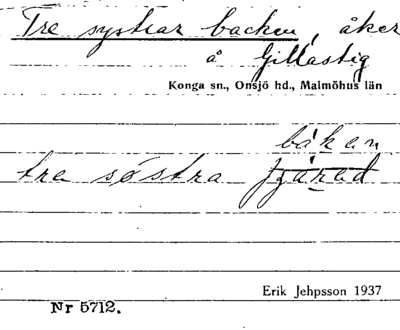 Tre systrar backen, åker
å Gillastig
Konga sn., Onsjö hd., Malmöhus län
båken
tre söstra
Erik Jehpsson 1937
Nr 5712.